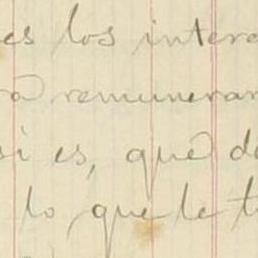 es los intere
ra remunerar
si es, que de
lo que le t